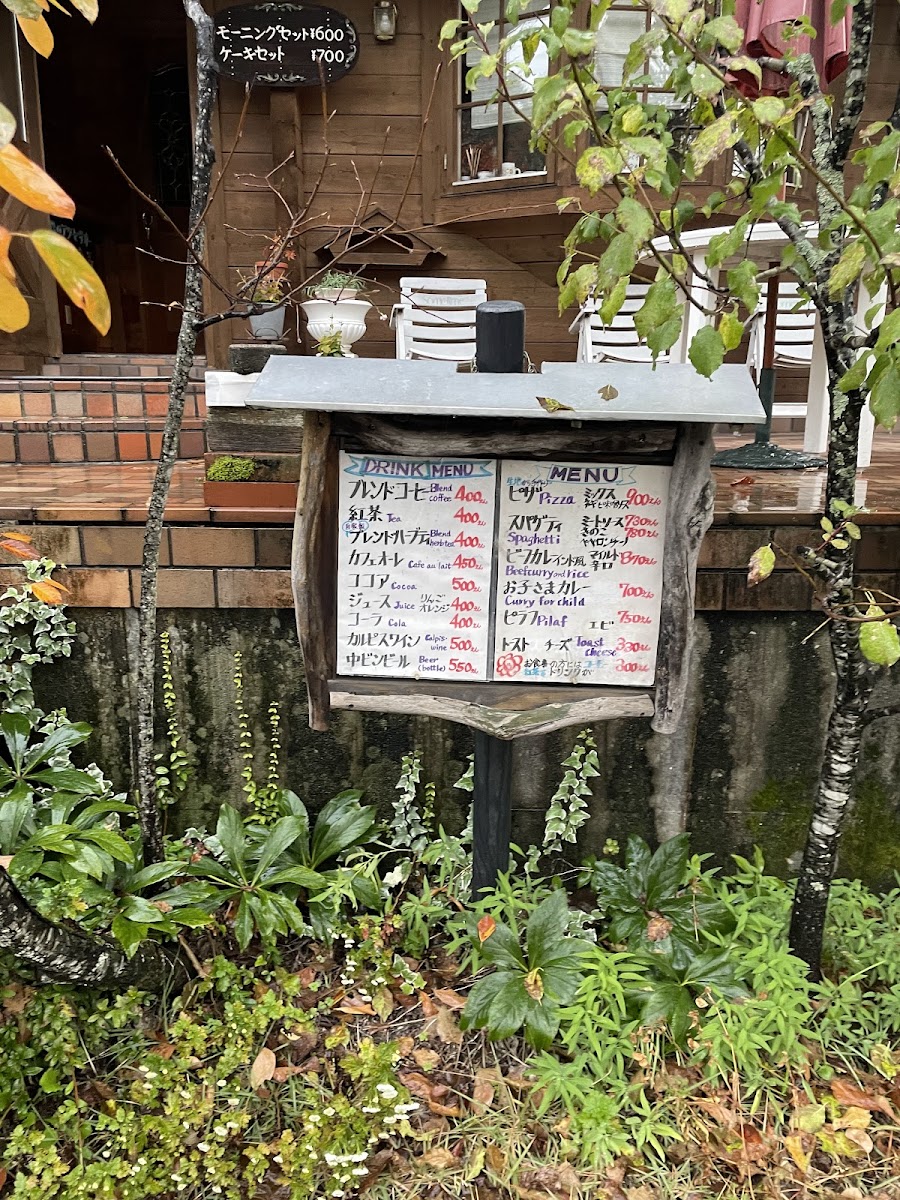 モーニングセット¥600
ケーキセット ¥700
DRINK MENU
ブレンドコーヒー Blend coffee 400
紅茶 Tea 400
自家製 ブレンドハーブティー Blend herbtea 400
カフェオーレ Cafe au lait 450
ココア Cocoa 500
ジュース Juice りんご オレンジ 400
コーラ Cola 400
カルピスワイン Calpis-wine 500
中ビンビール Beer (bottle) 550
MENU
ピザ Pizza ミックス 900
スパゲティ Spaghetti ミートソース 730
きのこ 780
ビーフカレー インド風 マイルド 辛口 870
Beefcurry and rice
お子さまカレー 700
Curry for child
ピラフ Pilaf エビ 750
トースト チーズ Toast cheese 330
お食事の方には コーヒー 紅茶 ドリンクが 300